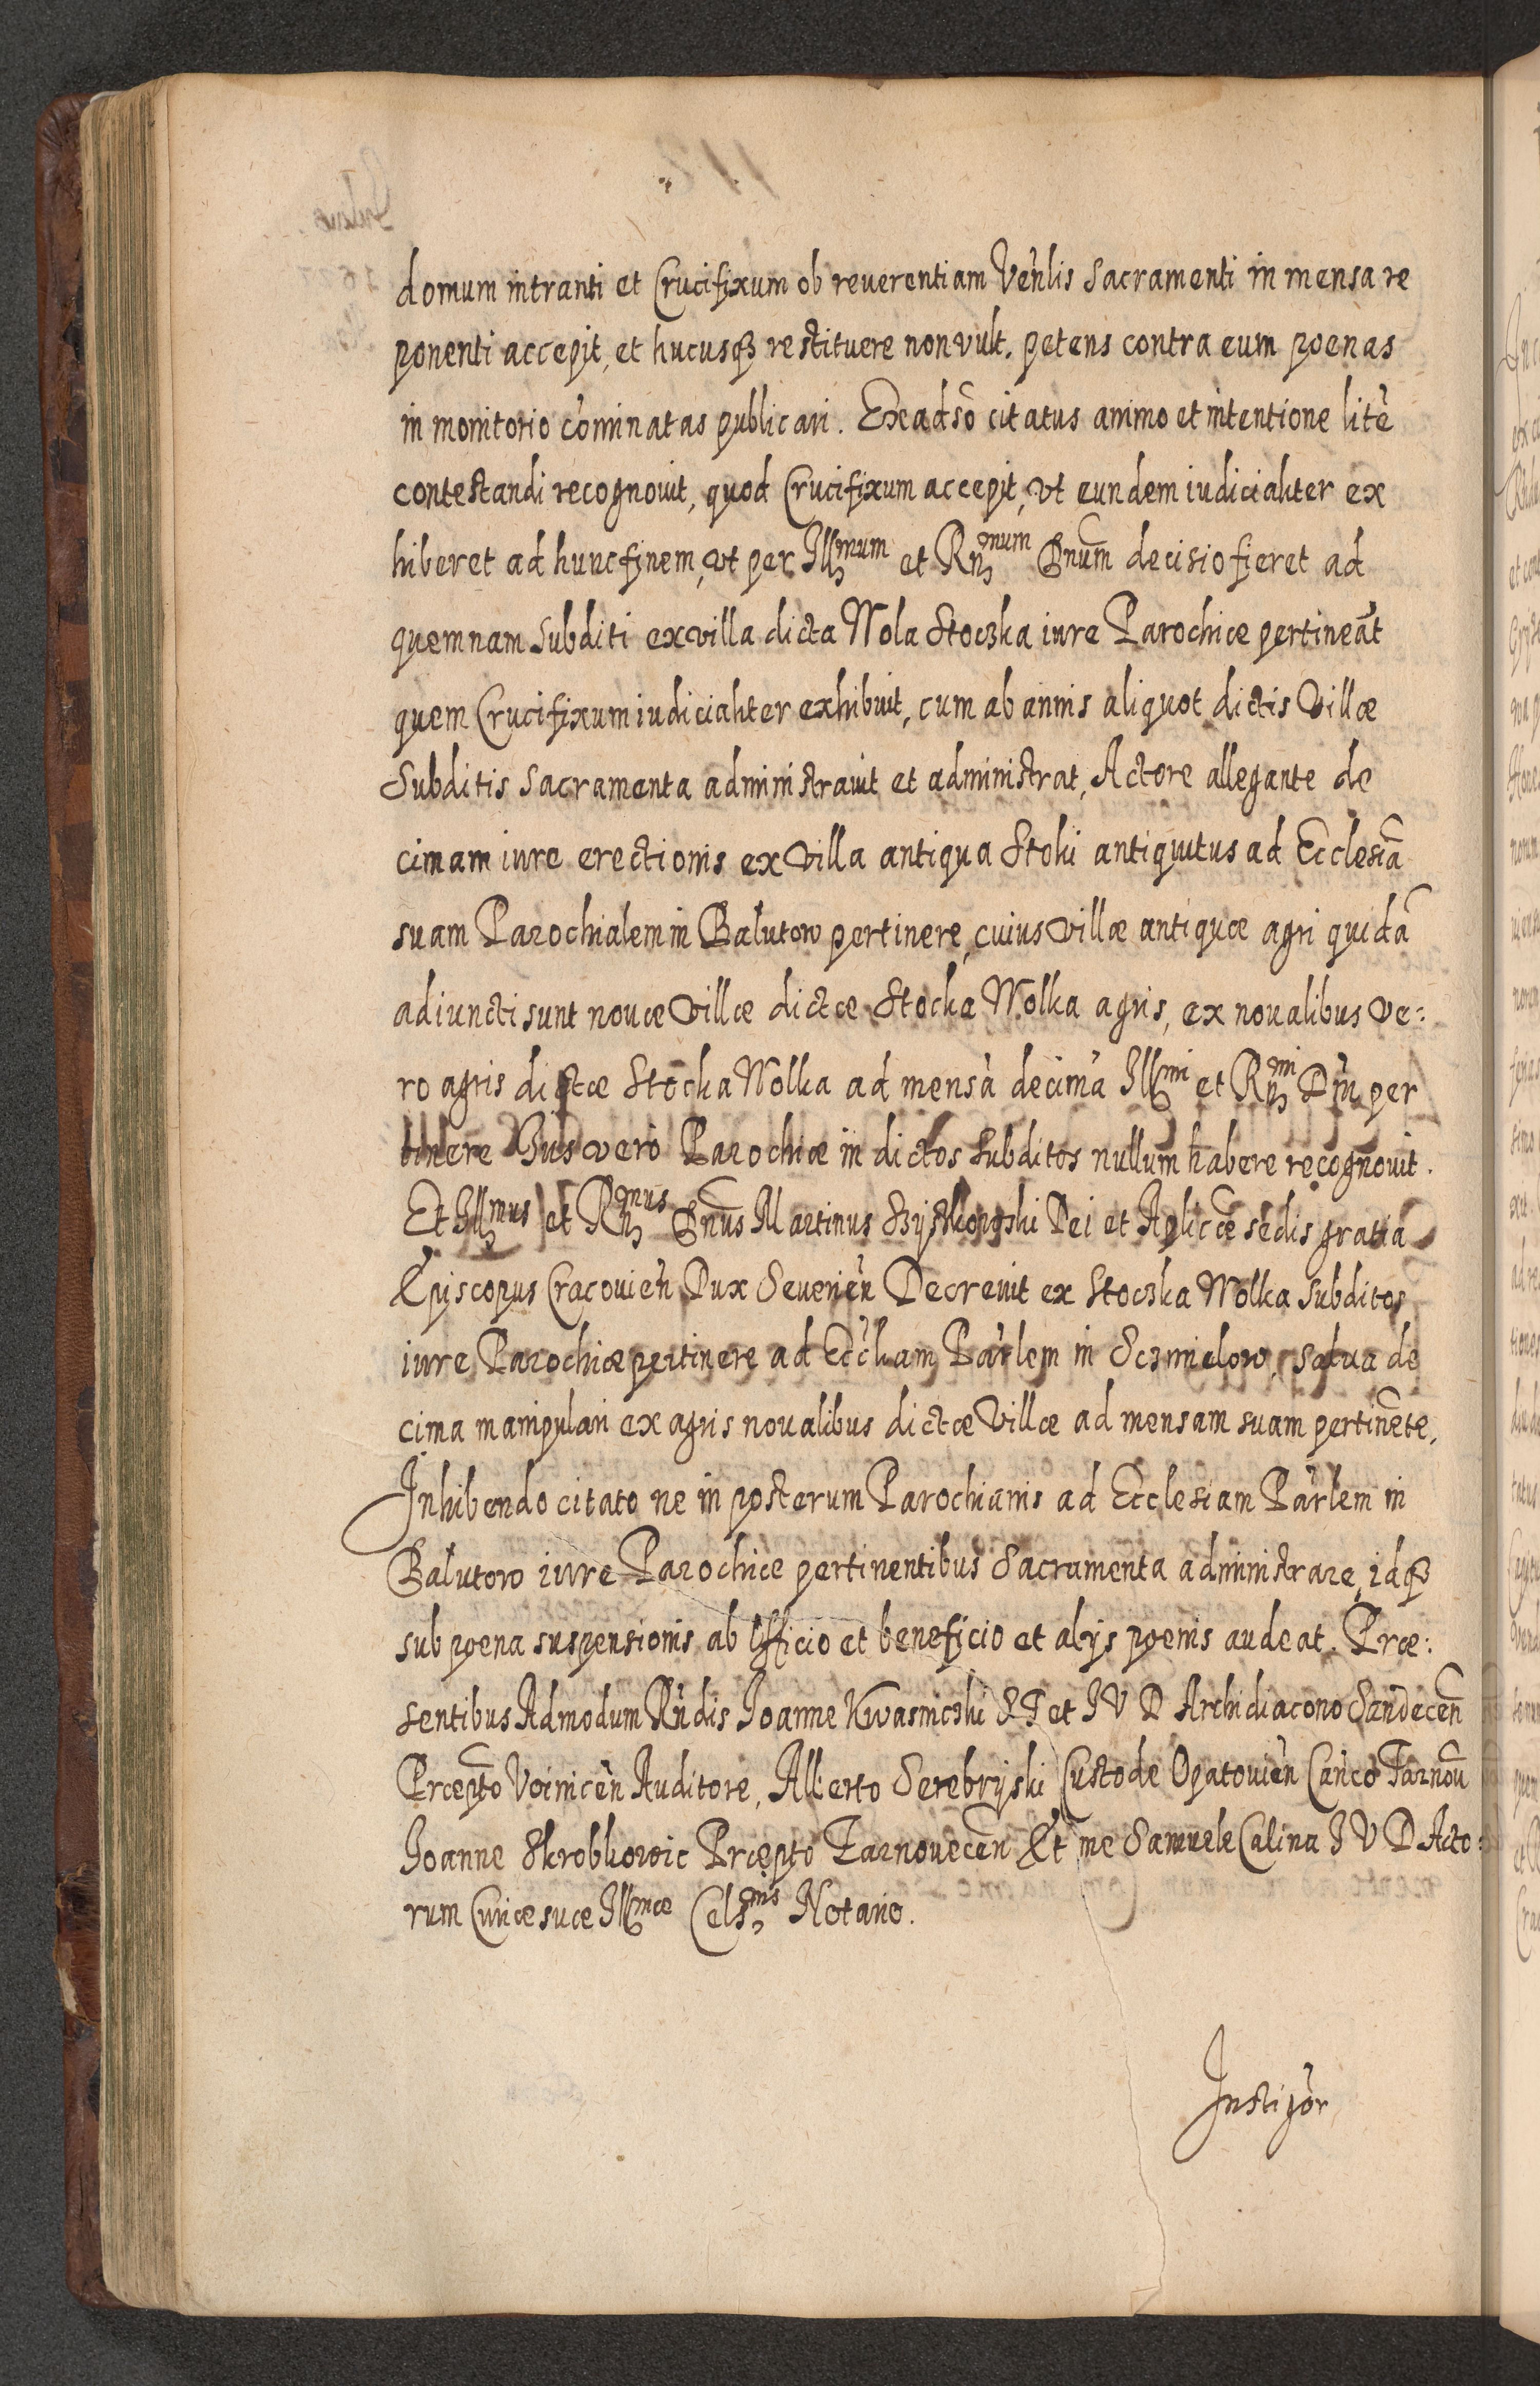 domum intranti et Crucifixum ob reuerentiam Venlis Sacramenti in mensa re
ponenti accepit, et hucusq3 restituere non vult. petens contra eum poenas
in monitorio cominatas publicari. Ex adso citatus animo et intentione lite
contestandi recognouit, quod Crucifixum accepit, vt eundem iudicialiter ex
hiberet ad hunc finem, vt per Illmum et Rnmum Dnum decisio fieret ad
quemnam subditi ex villa dicta Wola Stoczka iure Parochiæ pertineāt
quem Crucifixum iudicialiter exhibuit, cum ab annis aliquot dictis Villæ
Subditis Sacramenta administrauit et administrat, Actore allegante de
cimam iure erectionis ex Villa antiqua Stoki antiquitus ad Ecclesiā
suam Parochialem in Balutow pertinere, cuius villæ antiquæ agri quidā
adiuncti sunt nouæ Villæ dictæ Stocka Wolka agris, ex noualibus ve:
ro agris dictæ Stocka Wolka ad mensā decimā Illmi et Rnmi Dni per
tinere Ius vero Parochiæ in dictos Subditos nullum habere recognouit.
Et Illmus et Rnmus Dnus Martinus Szyszkowski Dei et Aplicæ sedis gratia
Episcopus Cracouien Dux Seuerien Decreuit ex Stoczka Wolka Subditos
iure Parochiæ pertinere ad Eccliam Parlem in Sczmielow, salua de
cima manipulari ex agris noualibus dictæ Villæ ad mensam suam pertinēte,
Inhibendo citato ne in posterum Parochianis ad Ecclesiam Parlem in
Balutow iure Parochiæ pertinentibus Sacramenta administrare, idq3
sub poena suspensionis ab officio et beneficio et alijs poenis audeat. Præ:
sentibus Admodum Rndis Ioanne Kwasniczki S T et I V D Archidiacono Sandecen
Præpto Voinicen Auditore, Alberto Serebryski Custode Opatouien Canco Tarnou
Ioanne Skrobkowic Præpto Tarnouecen Et me Samuele Calina I V D Acto:
rum Curiæ suæ Illmæ Celsnis Notario.
Instigor